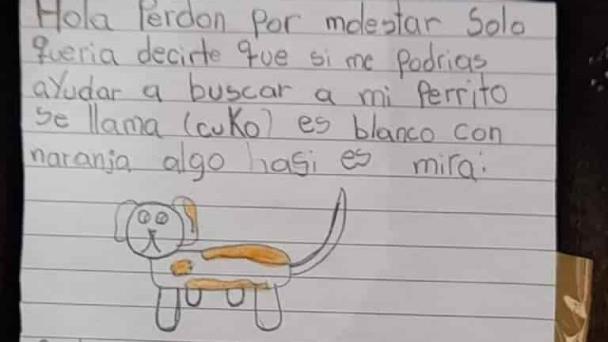 Hola Perdon por molestar Solo
queria decirte que si me podrias
ayudar a buscar a mi Perrito
se llama (cuko) es blanco con
naranja algo hasi es mira: